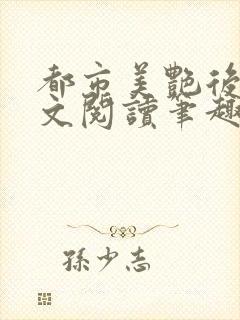 都市美艷後
文閱讀筆趣
孫少志